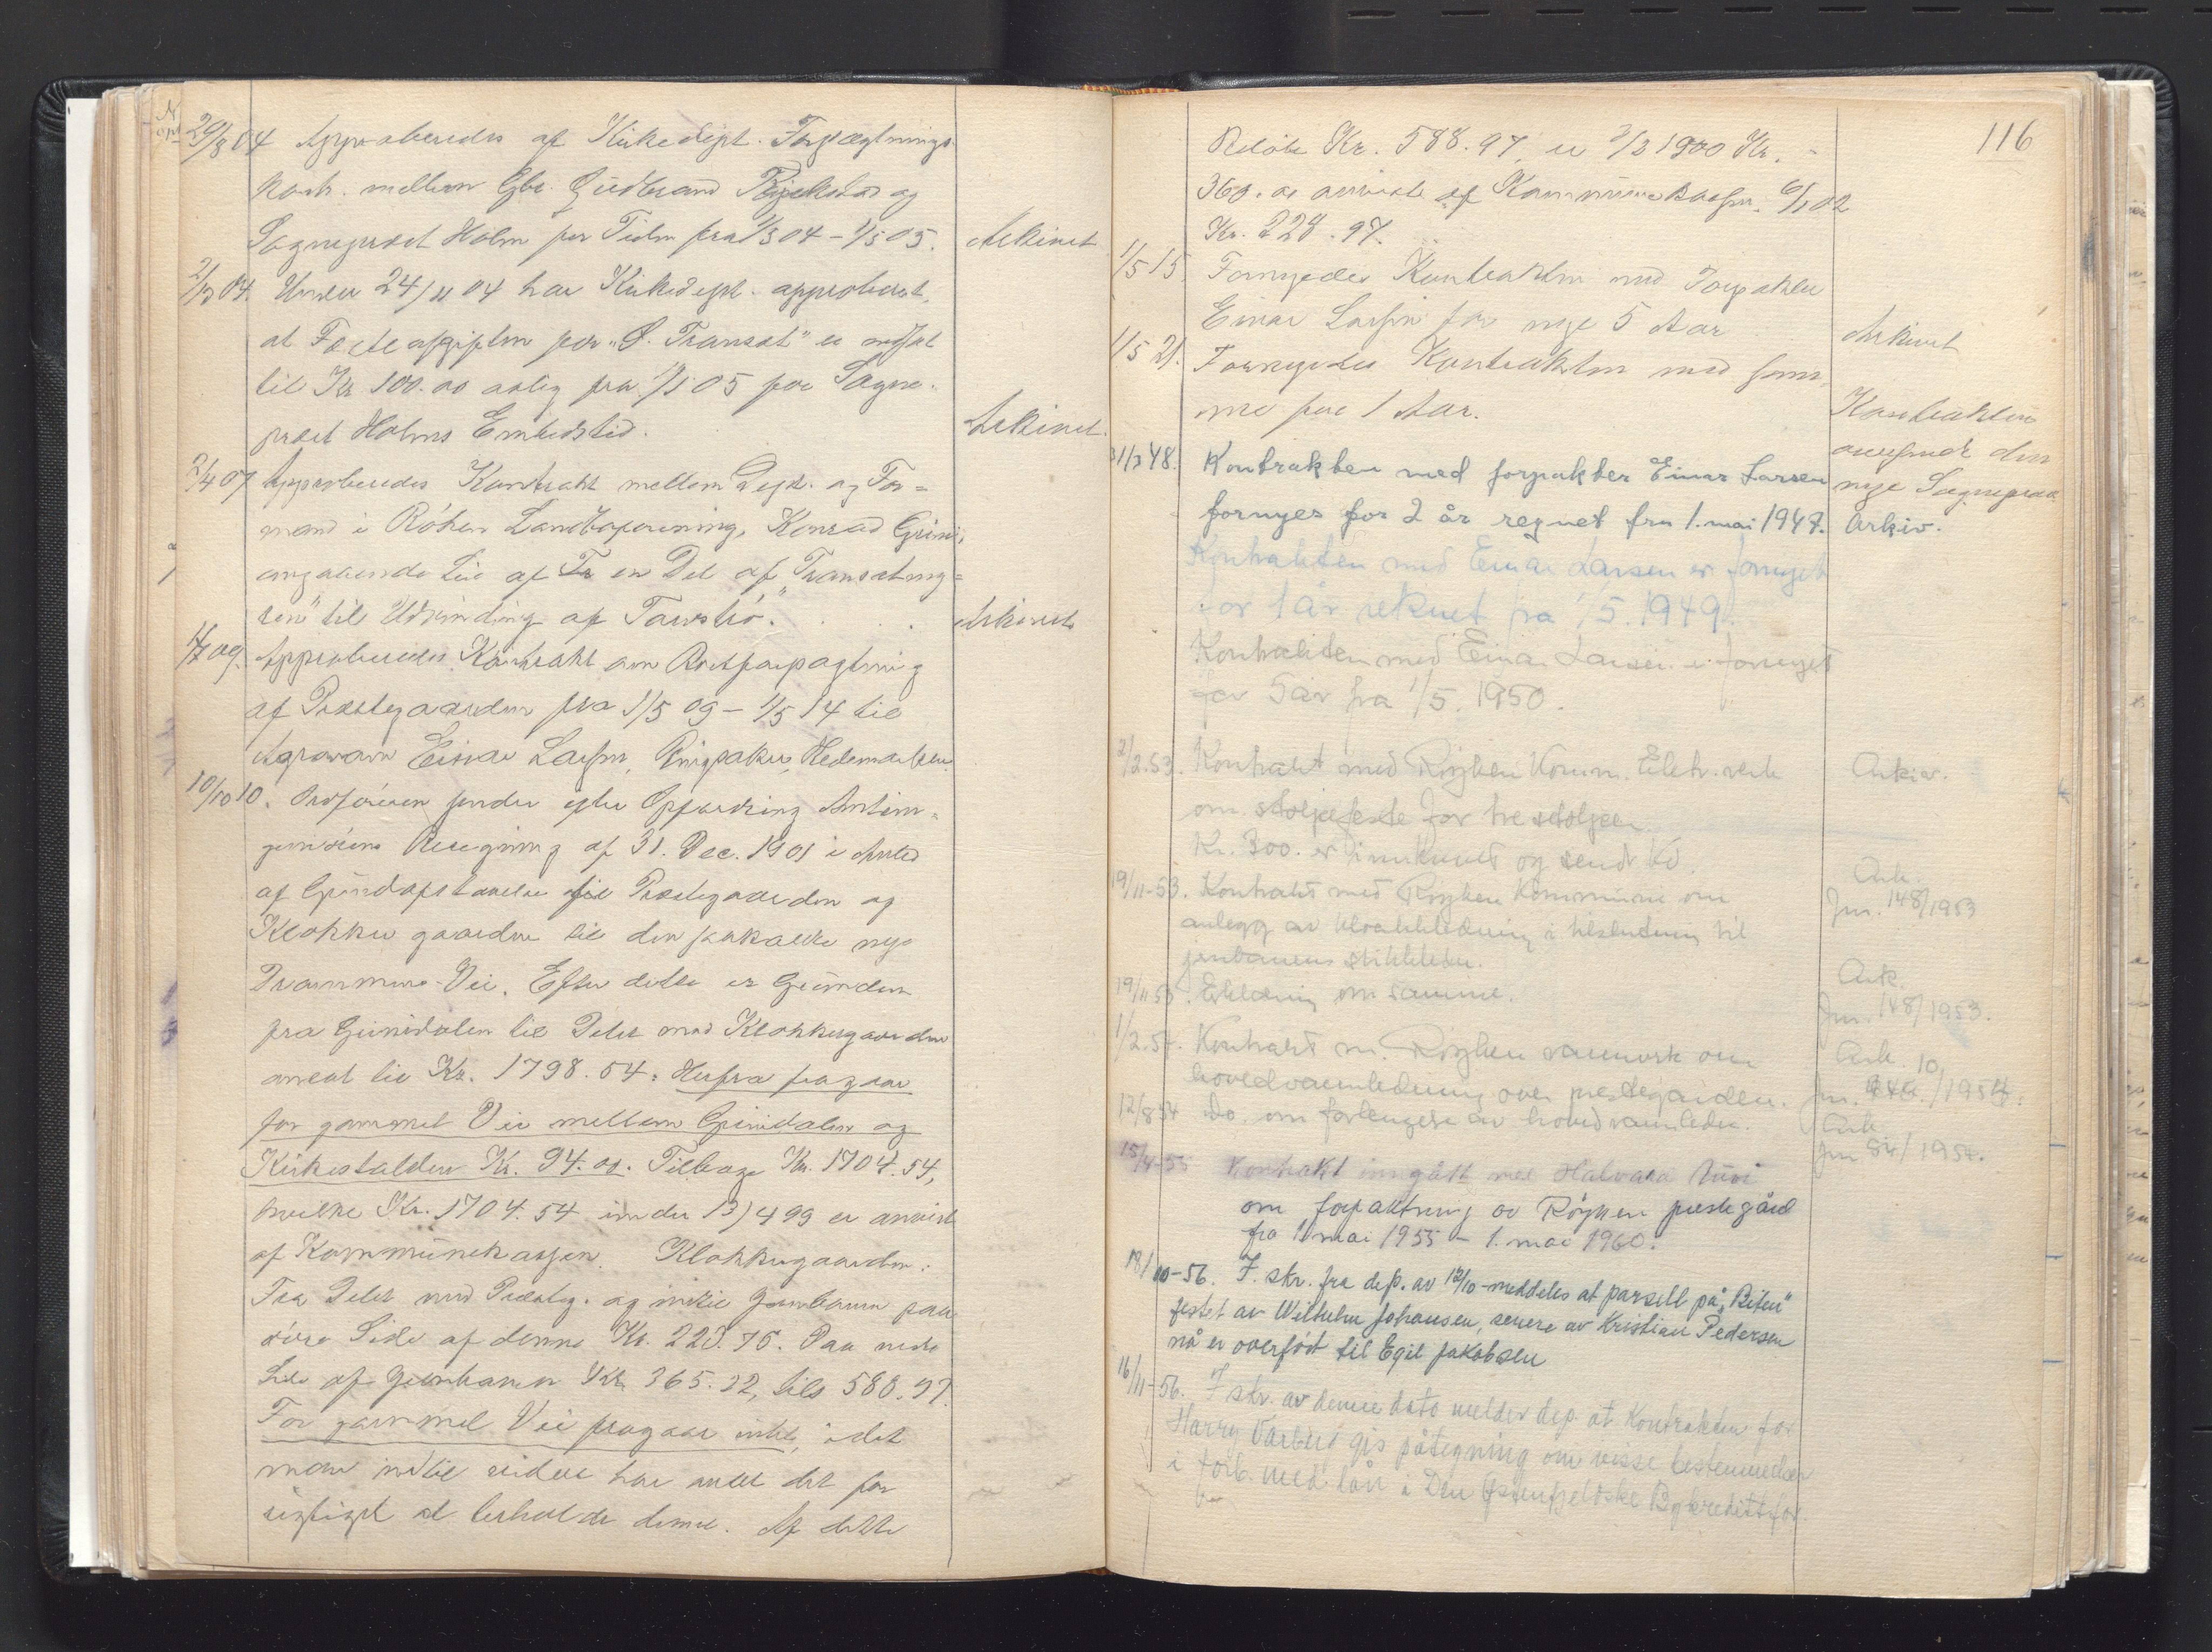 29/8 04 Approberedes af Kirkedept. Forpagtnings
kontr. mellem Gbr. Gudbrand og
Sogneprest Holm for Tiden fra 1/5 04 – 1/5 05. Arkivet
2/12 04. Under 24/11 04 har Kirkedept. approberet,
at Festeafgiften for "Ø. Transet" er ansat
til Kr 100.00 aarlig fra 1/1 05 for Sogne-
prest Holms Embedstid. Arkivet.
2/4 07 Approberedes Kontrakt mellem Dept. og For=
mand i Röken Landboforening, Konrad Grini,
angaaende Leie af en Del af "Transetmy=
ren" til Udvinding af Torvströ. Arkivet
09. Approberedes Kontrakt om Bortforpagtning
af Præstegaarden fra 1/5 09 – 1/5 14 til
Agronom Einar Larsen, Ringsaker, Hedemarken.
10/10 10. efter Opfordring Amtsin=
geniörens Beregning af 31. Dec. 1901 i Anled
af Grundafstaaelse fra Præstegaarden og
Klokkergaarden til den saakaldte nye
Drammens-Vei. Efter dette er Grunden
fra Grinidalen til Delet mod Klokkergaarden
ansat til Kr. 1798.54. Herfra fragaar
for gammel Vei mellem Grinidalen og
Kirkestalden Kr. 94.00. Tilbage Kr. 1704.54,
hvilke Kr. 1704.54 under 13/4 99 er anvist
af Kommunekassen. Klokkergaarden:
Fra Delet med Præsteg. og indtil Jernbanen paa
övre Side af denne Kr. 223.75. Paa nedre
Side af Jernbanen Kr. 365.22, tils 588.97.
For gammel Vei fragaar intet, idet
man indtil videre har anset det for
rigtigst at beholde denne. Af dette
116
Belöb Kr. 588.97, er 1900 Kr. -
360.00 anvist af Kommunekassen. 6/1 02
Kr. 228.97.
1/5 15 Fornyedes Kontrakten med Forpakter
Einar Larsen for nye 5 Aar Arkivet
1/5 21. Fornyedes Kontrakten med sam-
me for 1 Aar. Kontrakten
den
nye Sogneprest
31/3 48. Kontrakten med forpakter Einar Larsen
fornyes for 2 år regnet fra 1. mai 1947. Arkiv.
Kontrakten med Einar Larsen er fornyet
for 1 år reknet fra 1/5. 1949.
Kontrakten med Einar Larsen er fornyet
for 5 år fra 1/5. 1950.
2/2.53. Kontrakt med Røyken Komm. Elektr. verk Arkiv.
om stolpefeste for tre stolper.
Kr. 300. er innkrevet og sendt
19/11-53. Kontrakt med Røyken Kommune om Ark.
anlegg av kloakkledning i tilslutning til Jnr. 148/1953
jernbanens stikkledn.
19/11 53. Erklæring om samme. Ark.
Jnr. 148/1953.
1/2.54. Kontrakt m. Røyken vannverk om Ark. 10
hovedvannledning over prestegården. /1954.
12/8 54 Do. om forlengelse av hovedvannledn. Ark.
Jnr 84/1954.
15/4-55 Kontrakt inngått med Halvard
om forpaktning av Røyken prestegård
fra 1. mai 1955 – 1. mai 1960.
18/10-56. I skr. fra dep. av 12/10 meddeles at parsell på "Biten"
festet av Wilhelm Johansen, senere av Kristian Pedersen
nå er overført til Egil Jakobsen
16/11-56. I skr. av denne dato melder dep. at Kontrakten for
Harry gis påtegning om visse bestemmelser
i forb. med lån i Den Østenfjeldske Bykredittfor.